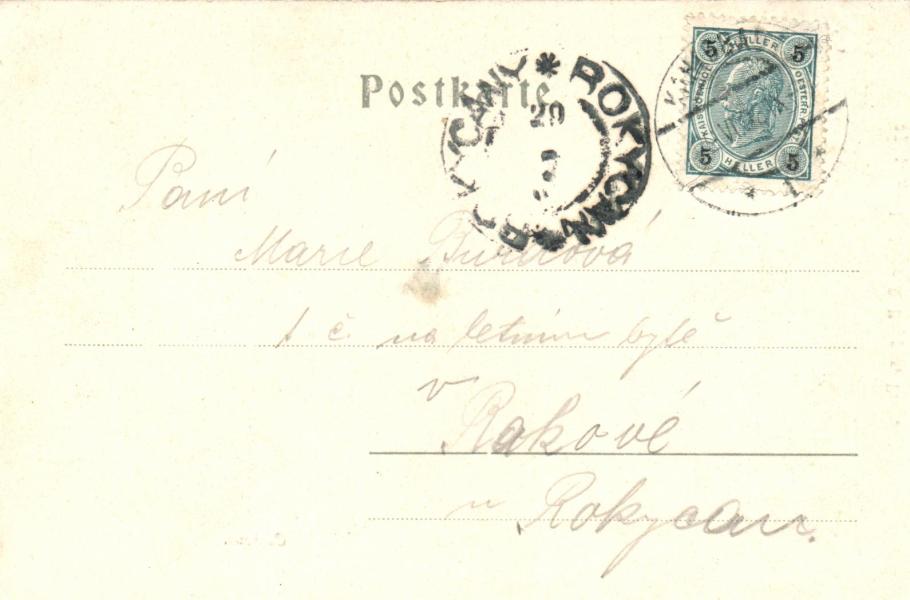 Postkarte
ROKYCANY * ROKYCANY
20
5 HELLER 5
5 HELLER 5
Paní
Marie
t č. na letním bytě
v
Rakové
u Rokycan.